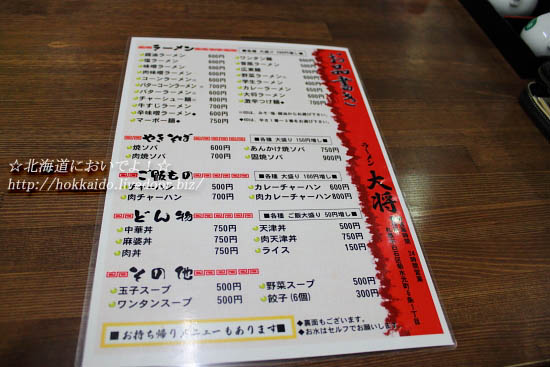 お品書き
ラーメン
■各種 大盛り 100円増し■
醤油ラーメン 600円
塩ラーメン 600円
味噌ラーメン 600円
肉味噌ラーメン 700円
コーンラーメン
バターコーンラーメン
バターラーメン
チャーシュー麺
牛すじラーメン
辛味噌ラーメン
マーボー麺
ワンタン麺
広東麺
野菜ラーメン
カレーラーメン
大将ラーメン
激辛つけ麺
やきそば
■各種 大盛り 150円増し■
焼ソバ 600円
肉焼ソバ 700円
あんかけ焼ソバ 750円
固焼ソバ 900円
ご飯もの
■各種 大盛り 100円増し■
チャーハン 500円
肉チャーハン 700円
カレーチャーハン 600円
肉カレーチャーハン 800円
どん物
■各種 ご飯大盛り 50円増し■
中華丼 750円
麻婆丼 750円
肉丼 750円
天津丼 500円
肉天津丼 750円
ライス 150円
その他
玉子スープ 500円
ワンタンスープ 500円
野菜スープ 500円
餃子(6個) 300円
■お持ち帰りメニューもあります■
◆裏面もございます。
◆お水はセルフでお願いします。
ラーメン 大将
24時間営業
☆北海道においでよ!☆
http://hokkaido.livedoor.biz/